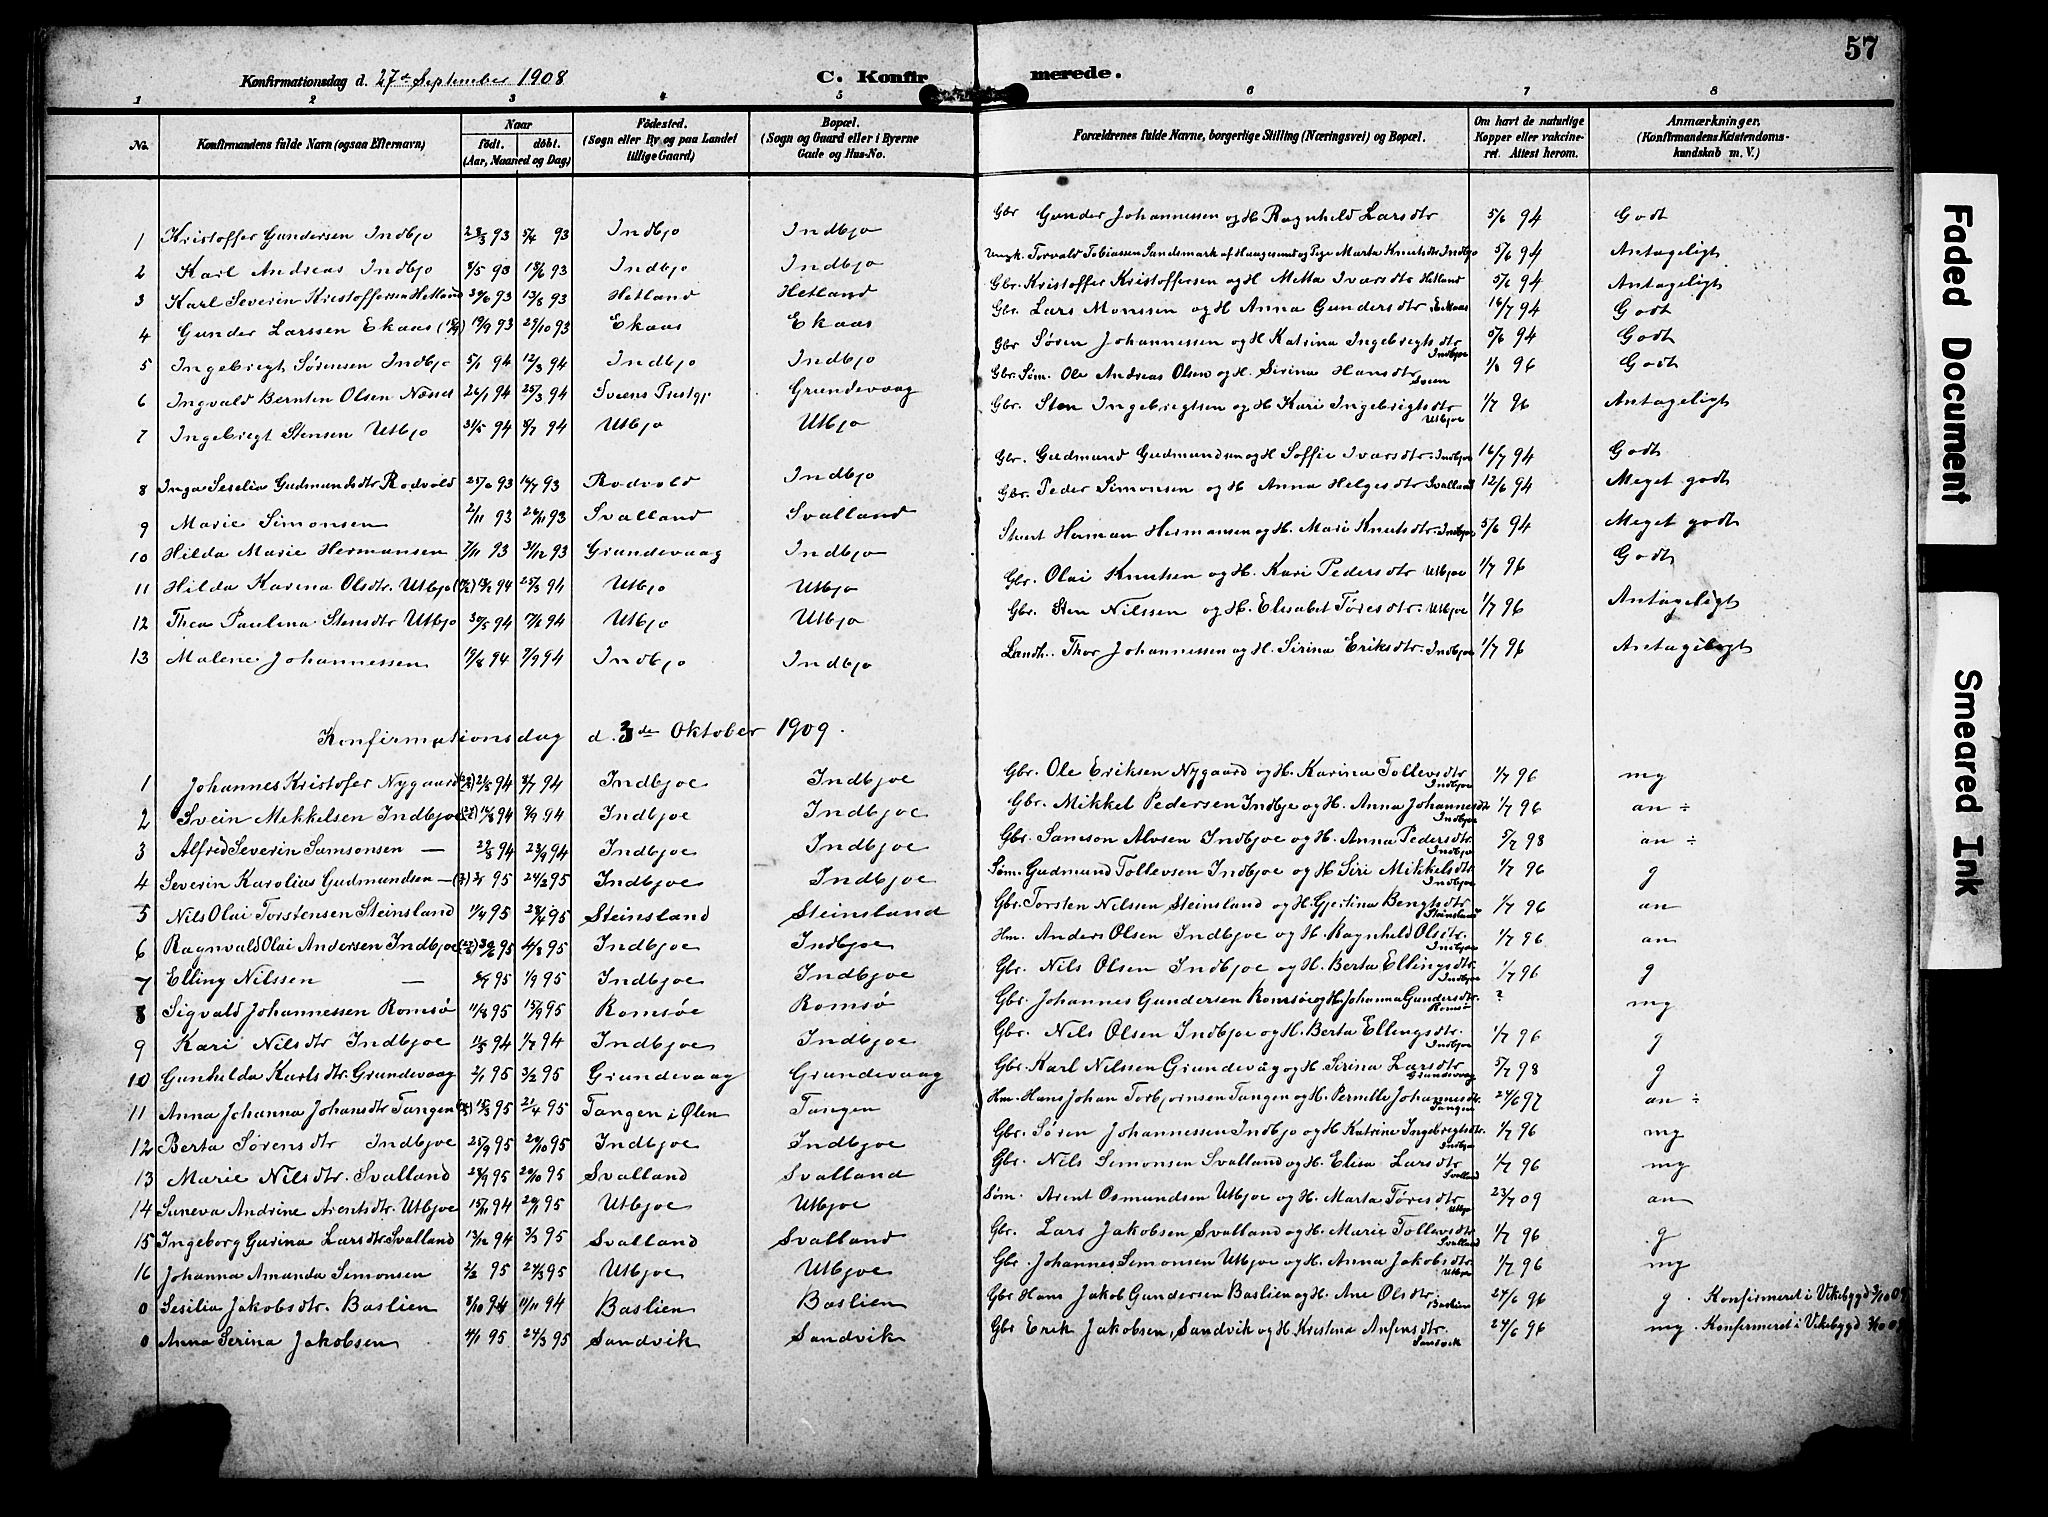 57
Konfirmationsdag d. 27de September 1908
C. Konfirmerede.
1 2 3 4 5 6 7 8
No. Konfirmandens fulde Navn (ogsaa Efternavn) Naar født. døbt. (Aar, Maaned og Dag) Fødested. (Sogn eller By og paa Landet tillige Gaard) Bopæl. (Sogn og Gaard eller i Byerne Gade og Hus-No. Forældrenes fulde Navne, borgerlige Stilling (Næringsvei) og Bopæl. Om havt de naturlige Kopper eller vakcineret. Attest herom. Anmærkninger, (Konfirmandens Kristendomskundskab m. V.)
1 Kristoffer Gundersen Indbjo 28/3 93 5/4 93 Indbjo Indbjo Gbr Gunder Johannessen og H Ragnheld Larsdtr 5/6 94 Godt
2 Karl Andreas Indbjo 8/5 93 18/6 93 Indbjo Indbjo Ungk. Torvald Tobiassen Sandsmark af Haugesund og Pige Marta Knutsdtr Indbjo 5/6 94 Antageligt
3 Karl Severin Kristoffersen Hetland 30/6 93 13/8 93 Hetland Hetland Gbr. Kristoffer Kristoffersen og H Metta Ivarsdtr Hetland 5/6 94 Antageligt
4 Gunder Larssen Ekaas 19/9 93 29/10 93 Ekaas Ekaas Gbr. Lars Monssen og H Anna Gundersdtr Ekaas 16/7 94 Godt
5 Ingebregt Sørensen Indbjo 5/1 94 12/3 94 Indbjo Indbjo Gbr Søren Johannessen og H Katrina Ingebregtsdtr Indbjoe 5/6 94 Godt
6 Ingvald Bernten Olsen Næsset 26/1 94 25/3 94 Sveens Prestgj Grundevaag Gbr. Søm. Ole Andreas Olsen og H. Serina Hansdtr Sveen 1/8 96 Godt
7 Ingebregt Stensen Utbjo 31/5 94 8/7 94 Utbjo Utbjo Gbr. Sten Ingebregtsen og H Kari Ingebrigtsdtr Utbjoe 1/7 96 Antageligt
8 Inga Seselia Gudmundsdtr Rodvold 25/6 93 16/7 93 Rodvold Indbjo Gbr. Gudmund Gudmundsen og H Soffie Ivarsdtr. Indbjoe 16/7 94 Godt
9 Marie Simonsen 2/11 93 26/11 93 Svalland Svalland Gbr. Peder Simonsen og H Anna Helgesdtr Svalland 12/6 94 Meget godt
10 Hilda Marie Hermansen 7/11 93 31/12 93 Grundevaag Indbjo Stuert Herman Hermansen og H. Mari Knutsdtr. Indbjoe 5/6 94 Meget godt
11 Hilda Karina Olsdtr. Utbjo 25/3 94 Utbjo Utbjo Gbr. Olai Knutsen og H. Kari Pedersdtr Utbjoe 1/7 96 Godt
12 Thea Paulena Stensdtr Utbjo 30/5 94 7/6 94 Utbjo Utbjo Gbr. Sten Nilssen og H. Elisabet Toresdtr. Utbjoe 1/7 96 Antageligt
13 Malene Johannessen 19/8 94 7/9 94 Indbjo Indbjo Landh. Thor Johannessen og H Sirina Eriksdtr. Indbjoe 1/7 96 Antageligt
Konfirmationsdag d. 3de Oktober 1909.
1 Johannes Kristofer Nygaard 21/5 94 8/7 94 Indbjoe Indbjoe Gbr. Ole Eriksen Nygaard og H. Karina Tollevsdtr Indbjoe 1/7 96 mg
2 Svein Mekkelsen Indbjoe 16/8 94 9/9 94 Indbjoe Indbjoe Gbr. Mikkel Pedersen Indbjoe og H. Anna Johannesdtr Indbjoe 1/7 96 an ÷
3 Alfred Severin Samsonsen — 29/8 94 23/9 94 Indbjoe Indbjoe Gbr. Samson Alvsen Indbjoe og H. Anna Pedersdtr. Indbjo 5/7 98 an ÷
4 Severin Karolius Gudmundsen — 95 24/2 95 Indbjoe Indbjoe Søm. Gudmund Tollevsen Indbjoe og H Siri Mikkelsdtr Indbjoe 1/7 96 g
5 Nils Olai Torstensen Steinsland 1/4 95 28/4 95 Steinsland Steinsland Gbr. Torsten Nilssen Steinsland og H. Gjertina Bengtsdtr Steinsland 1/7 96 an
6 Ragnvald Olai Andersen Indbjoe 30/6 95 4/8 95 Indbjoe Indbjoe Hm. Anders Olsen Indbjoe og H. Ragnheld Olsdtr. Indbjoe 1/7 96 an
7 Elling Nilssen — 95 1/9 95 Indbjoe Indbjoe Gbr. Nils Olsen Indbjoe og H. Berta Ellingsdtr. Indbjoe 1/7 96 g
8 Sigvald Johannessen Romsö 11/8 95 15/9 95 Romsöe Romsö Gbr. Johannes Gundersen Romsöe og H. Johanna Gundersdtr. Romsö ? mg
9 Kari Nilsdtr Indbjoe 11/5 94 1/7 94 Indbjoe Indbjoe Gbr. Nils Olsen Indbjoe og H. Berta Ellingsdtr. Indbjoe 1/7 96 g
10 Gunhelda Karlsdtr. Grundevaag 2/1 95 3/2 95 Grundevaag Grundevaag Gbr. Karl Nilssen Grundevåg og H Sirina Larsdtr Grundevaag 5/7 98 g
11 Anna Johanna Johansdtr Tangen 15/3 95 21/4 95 Tangen i Ølen Tangen Hm. Hans Johan Torbjornsen Tangen og H. Pernille Johannesdtr. Tangen 24/6 97 an ÷
12 Berta Sørensdtr Indbjoe 25/9 95 20/10 95 Indbjoe Indbjoe Gbr. Søren Johannessen Indbjo og H Katrine Ingebregtsdtr. Indbjoe 1/7 96 mg
13 Marie Nilsdtr. Svalland 28/9 95 20/10 95 Svalland Svalland Gbr. Nils Simonsen Svalland og H. Elisa Larsdtr Svalland 1/7 96 mg
14 Suneva Andrine Arentsdtr. Utbjoe 15/11 94 20/1 95 Utbjoe Utbjoe Søm. Arent Osmundsen Utbjoe og H. Marta Toresdtr Utbjo 23/7 09 an
15 Ingeborg Gurina Larsdtr. Svalland 13/12 94 3/3 95 Svalland Svalland Gbr. Lars Jakobsen Svalland og H. Marie Tollevsdtr Svalland 1/7 96 g
16 Johanna Amanda Simonsen 2/2 95 24/3 95 Utbjoe Utbjoe Gbr. Johannes Simonsen Utbjoe og H. Anna Jakobsdtr. Utbjoe 1/7 96 mg
0 Sesilia Jakobsdtr. Baslien 8/10 94 11/11 94 Baslien Baslien Gbr Hans Jakob Gundersen Baslien og H. Ane Olsdtr. Baslien 24/6 96 g. Konfirmeret i Vikebygd 3/10 09
0 Anna Serina Jakobsen 4/1 95 24/3 95 Sandvik Sandvik Gbr Erik Jakobsen, Sandvik og H. Kristena Anfensdtr. Sandvik 24/6 96 mg. Konfirmeret i Vikebygd 3/10 09
Faded Document
Smeared Ink